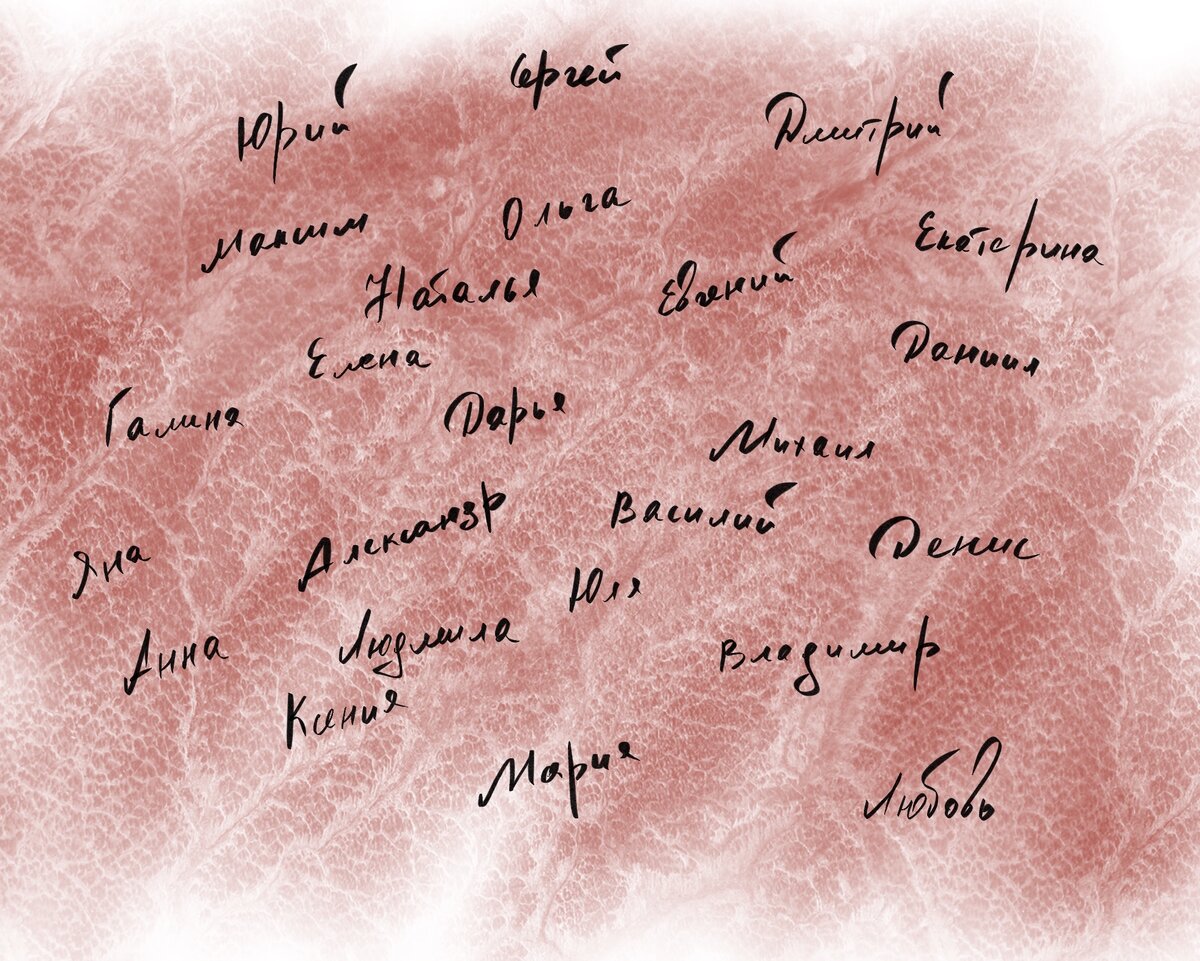 Сергей
Юрий
Дмитрий
Ольга
Максим
Екатерина
Наталья
Евгений
Елена
Даниил
Галина
Дарья
Михаил
Александр
Василий
Денис
Яна
Юля
Анна
Людмила
Владимир
Ксения
Мария
Любовь